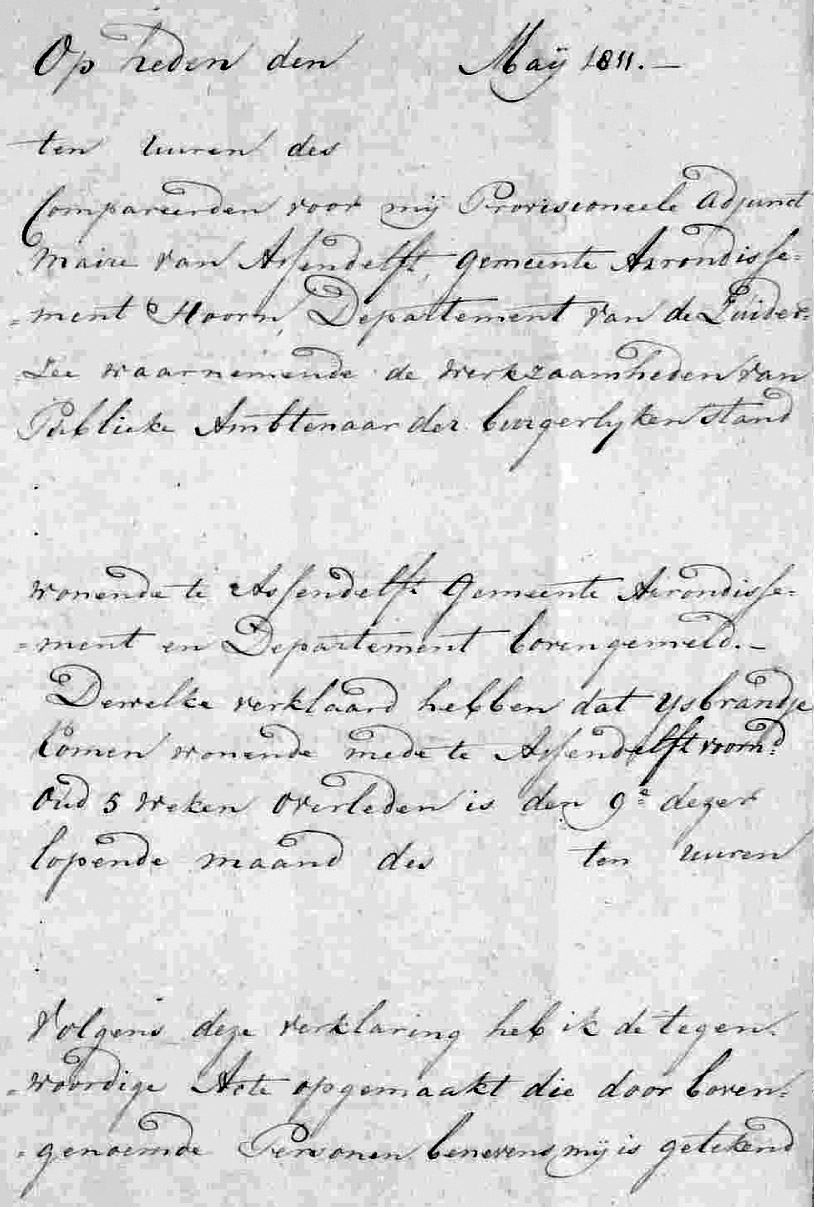 Op heden den Maÿ 1811. —
ten uuren des
Compareerden voor mÿ Provisioneele Adjunct
Maire van Assendelft, gemeente Arrondisse=
=ment Hoorn, Departement van de Zuider=
=Zee waarnemende de werkzaamheden van
Publieke Ambtenaar der burgerlyken stand
wonende te Assendelft Gemeente Arrondisse=
=ment en Departement bovengemeld. —
Dewelke verklaard hebben dat ysbrandje
wonende mede te Assendelft voornd
oud 5 weken overleden is den 9e dezer
lopende maand des ten uuren
Volgens deze verklaring heb ik de tegen=
=woordige Acte opgemaakt die door boven=
=genoemde Personen benevens mÿ is getekend